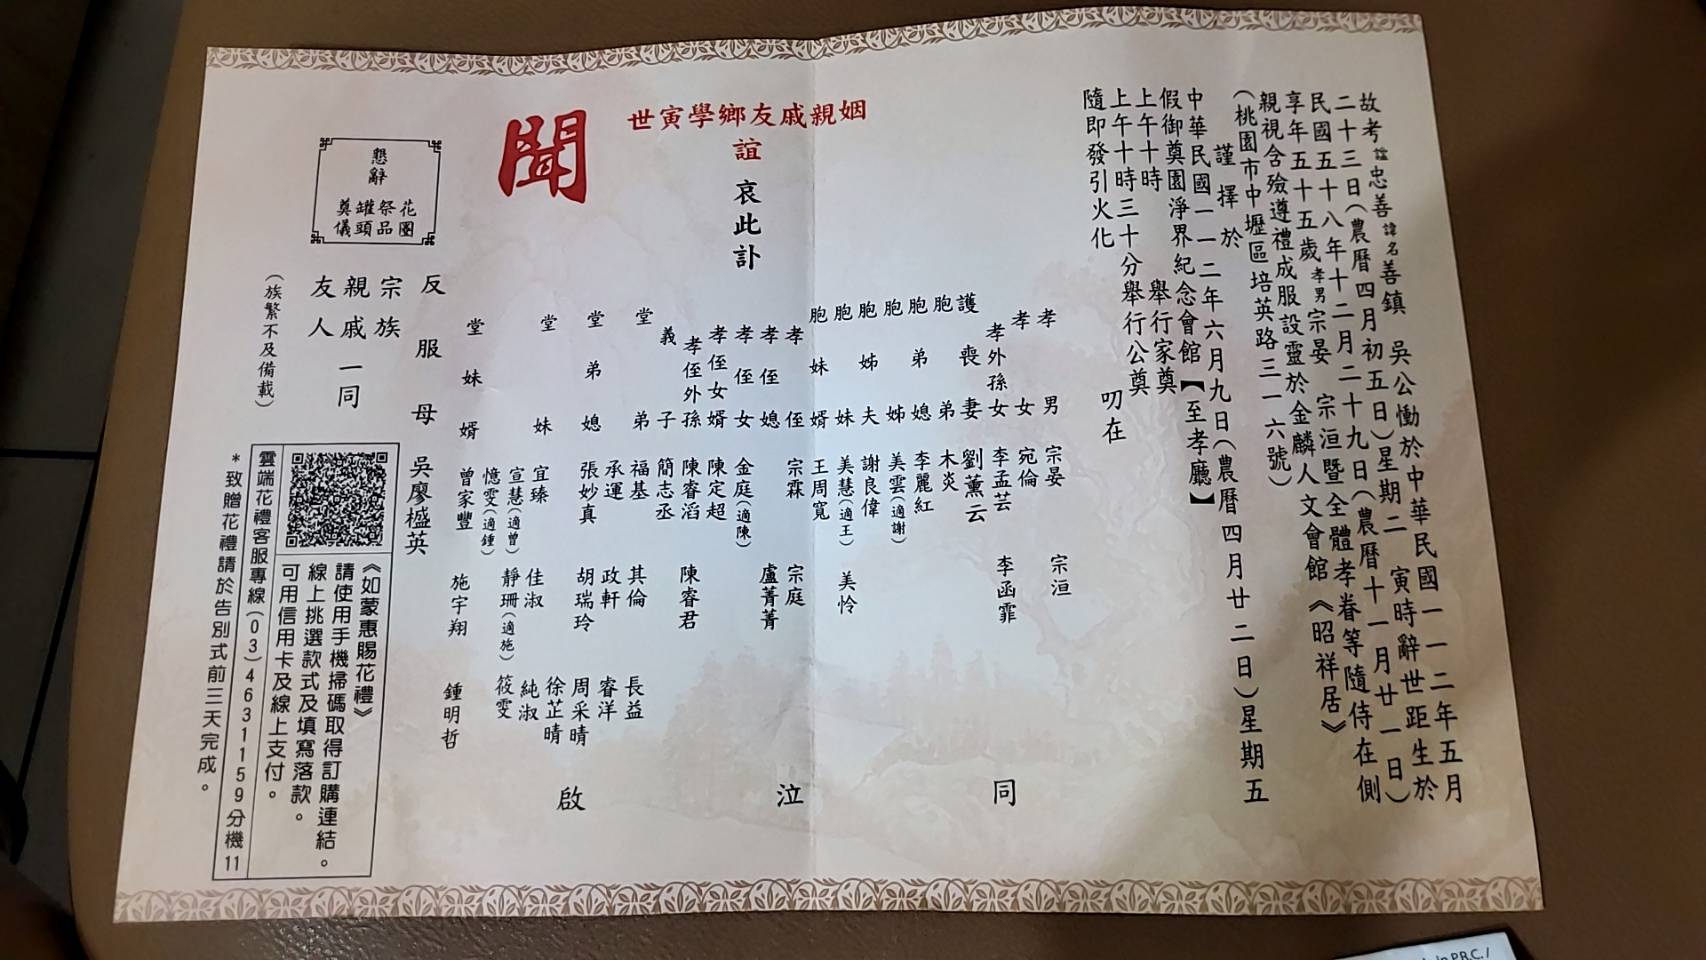 故考諡忠善諱名善鎮 吳公慟於中華民國一一二年五月
二十三日(農曆四月初五日)星期二 寅時辭世距生於
民國五十八年十二月二十九日(農曆十一月廿一日)
享年五十五歲孝男宗晏 宗洹暨全體孝眷等隨侍在側
親視含殮遵禮成服設靈於金麟人文會館《昭祥居》
(桃園市中壢區培英路三一六號)
謹擇於
中華民國一一二年六月九日(農曆四月廿二日)星期五
假御奠園淨界紀念會館【至孝廳】
上午十時 舉行家奠
上午十時三十分舉行公奠
隨即發引火化 叨在
姻親戚友鄉學寅世
誼 哀此訃
聞
孝男 宗晏 宗洹
孝女 宛倫
孝外孫女 李孟芸 李函霏
護喪妻 劉薰云
胞弟 木炎
胞弟媳 李麗紅
胞姊 美雲(適謝)
胞姊夫 謝良偉
胞妹 美慧(適王) 美怜
胞妹婿 王周寬
孝侄 宗霖 宗庭
孝侄媳 盧菁菁
孝侄女 金庭(適陳)
孝侄女婿 陳定超
孝侄外孫 陳睿滔 陳睿君
義子 簡志丞
堂弟 福基 其倫 長益
承運 政軒 睿洋
堂弟媳 張妙真 胡瑞玲 周采晴
徐芷晴
堂妹 宜臻 佳淑 純淑
宣慧(適曾) 靜珊(適施) 筱雯
憶雯(適鍾)
堂妹婿 曾家豐 施宇翔 鍾明哲
反服母 吳廖楹英
同泣啟
宗族
親戚一同
友人
(族繁不及備載)
懇辭
花圈
祭品
罐頭
奠儀
《如蒙惠賜花禮》
請使用手機掃碼取得訂購連結。
線上挑選款式及填寫落款。
可用信用卡及線上支付。
雲端花禮客服專線(03)4631159分機11
*致贈花禮請於告別式前三天完成。